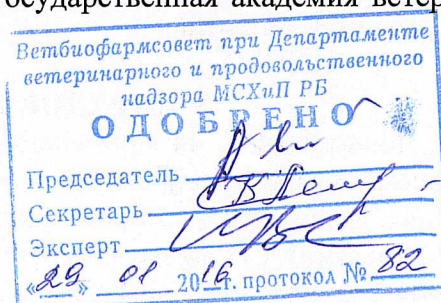 осударственная академия ветер
Ветбиофармсовет при Департаменте
ветеринарного и продовольственного
надзора МСХиП РБ
ОДОБРЕНО
Председатель
Секретарь
Эксперт
«29» 01 2016г. протокол № 82